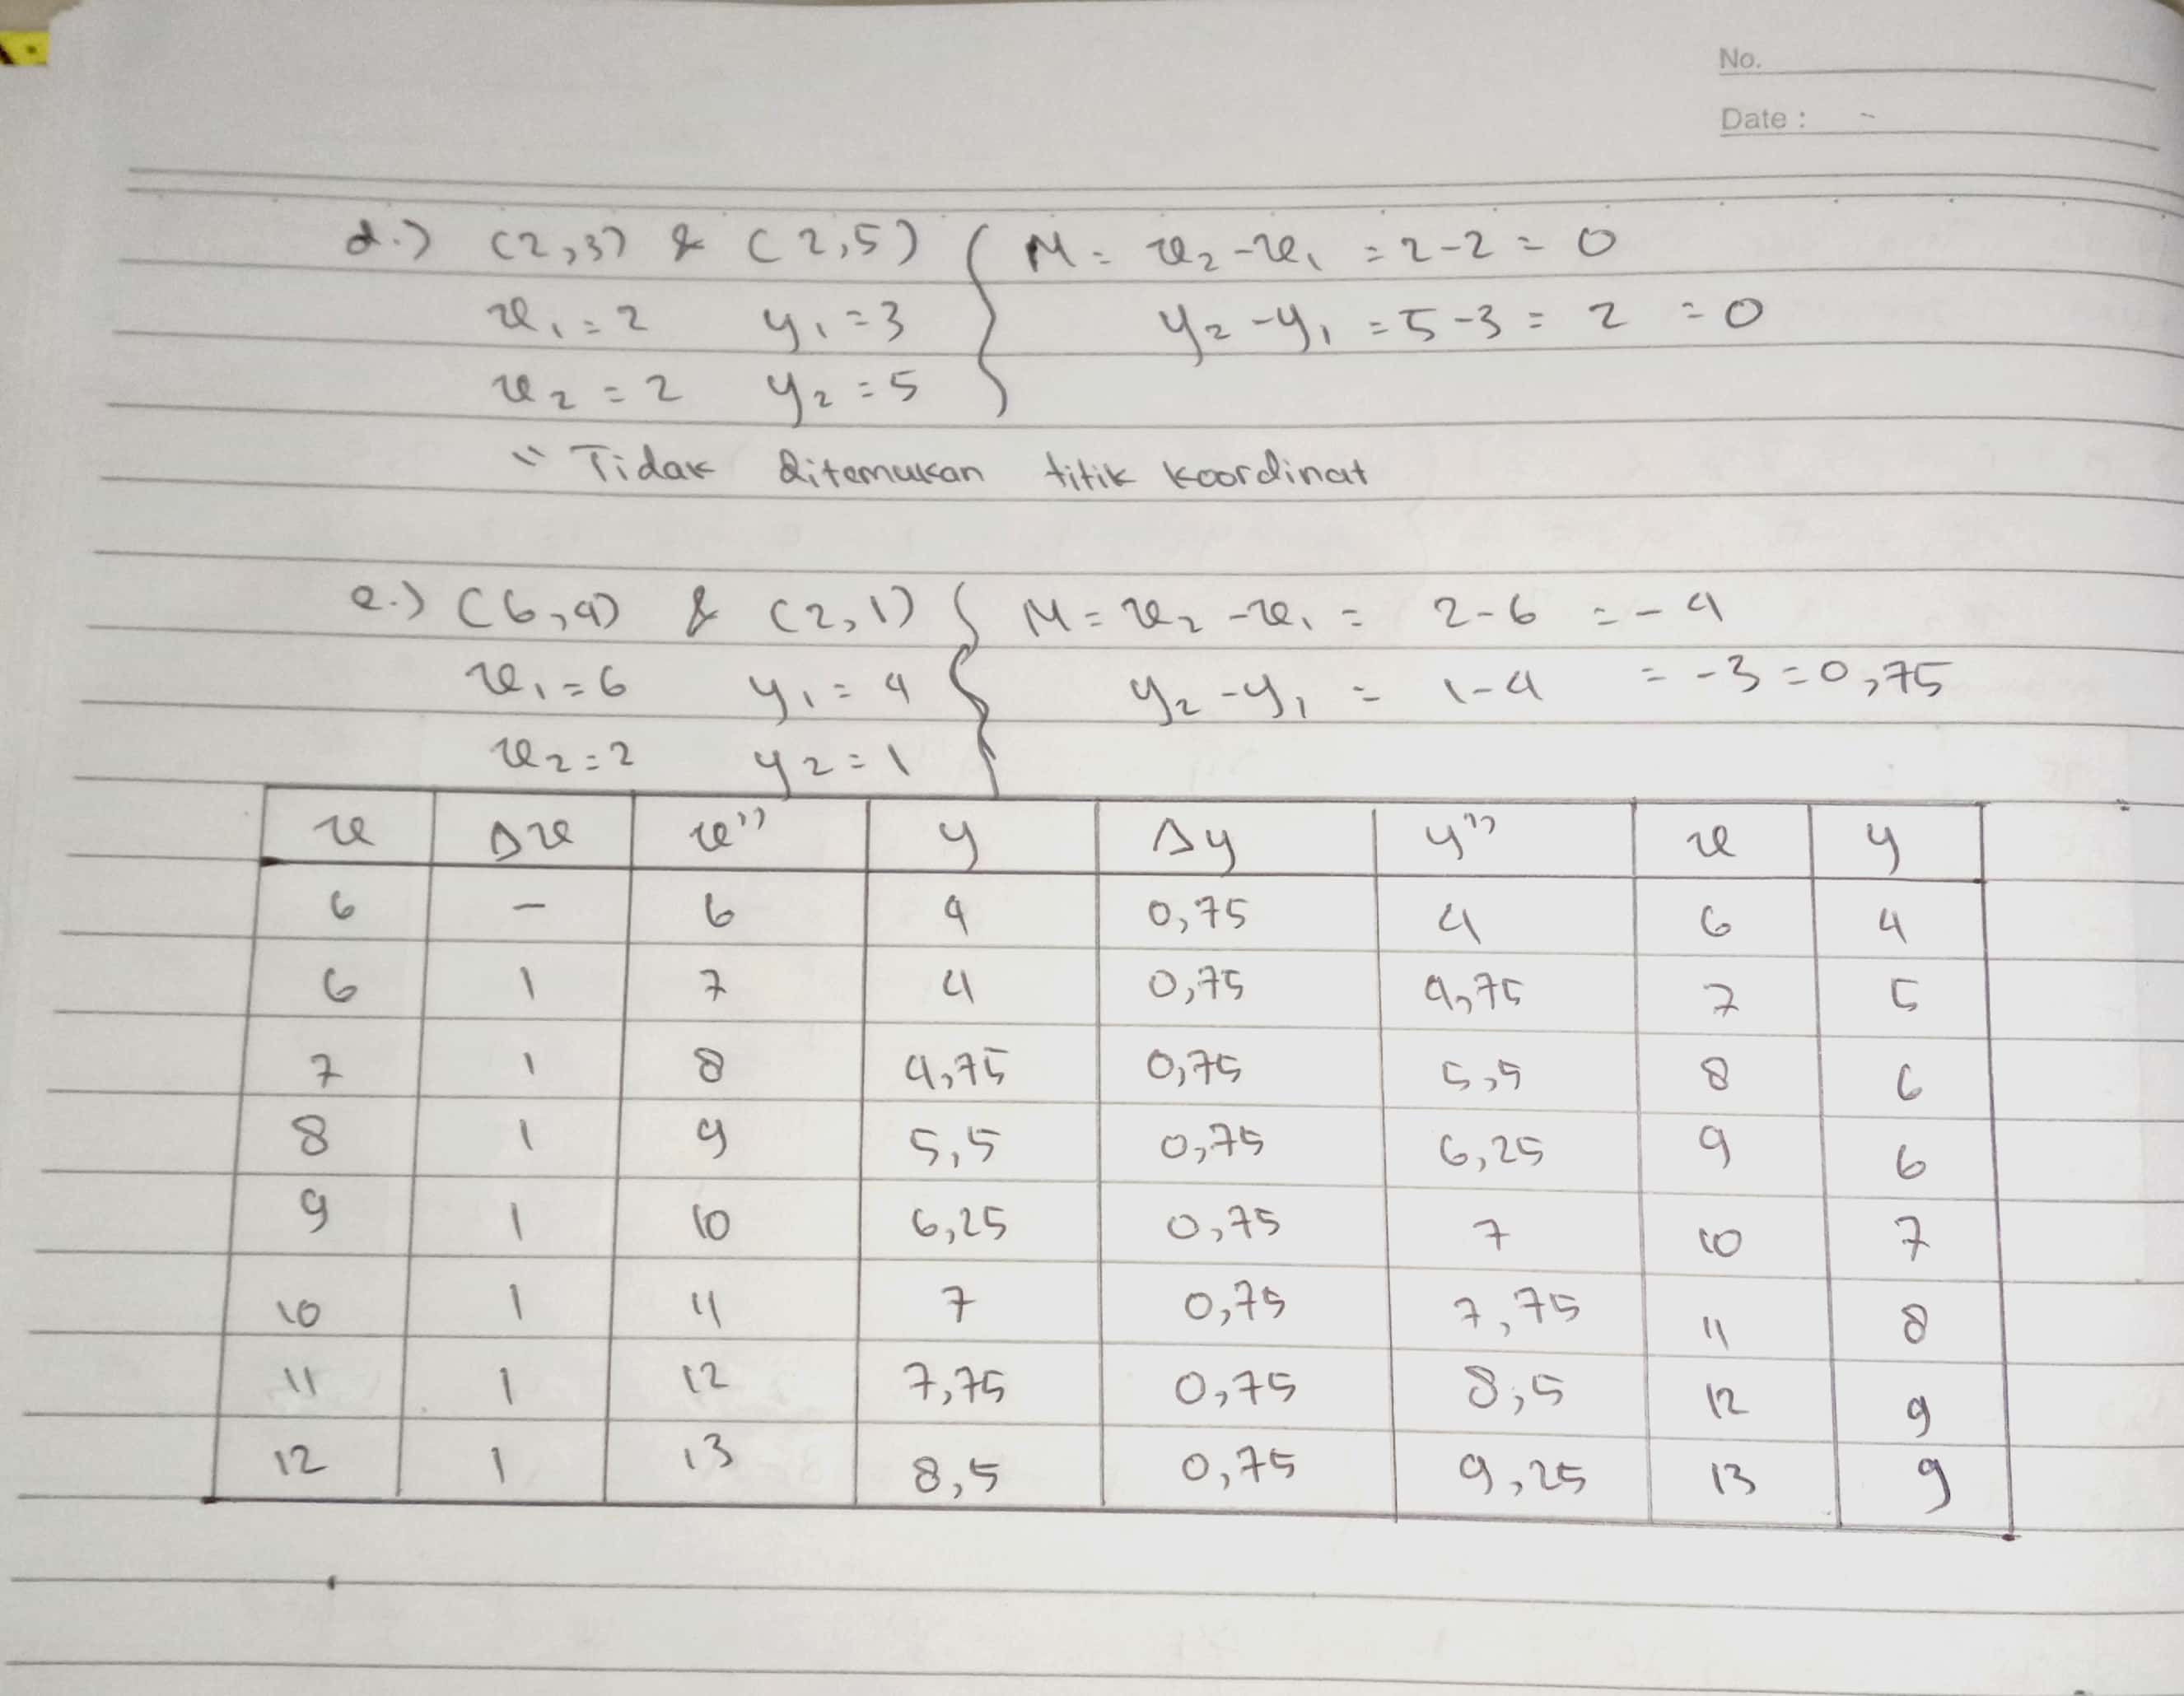 No.
Date :
d.) (2,3) & (2,5) { M = x₂ - x₁ = 2-2 = 0
x₁ = 2 y₁ = 3 y₂ - y₁ = 5-3 = 2 = 0
x₂ = 2 y₂ = 5
" Tidak ditemukan titik koordinat
e.) (6,4) & (2,1) { M = x₂ - x₁ = 2-6 = -4
x₁ = 6 y₁ = 4 y₂ - y₁ = 1-4 = -3 = 0,75
x₂ = 2 y₂ = 1
x Δx x" y Δy y" x y
6 - 6 4 0,75 4 6 4
6 1 7 4 0,75 4,75 7 5
7 1 8 4,75 0,75 5,5 8 6
8 1 9 5,5 0,75 6,25 9 6
9 1 10 6,25 0,75 7 10 7
10 1 11 7 0,75 7,75 11 8
11 1 12 7,75 0,75 8,5 12 9
12 1 13 8,5 0,75 9,25 13 9